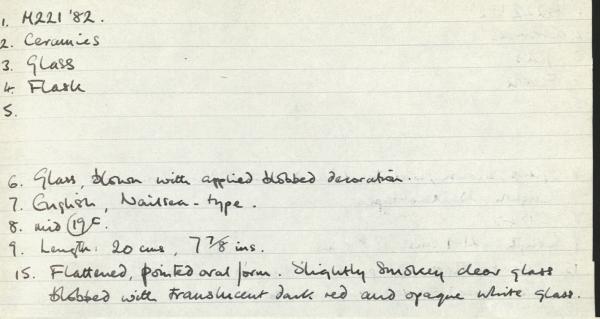 1. M221 '82.
2. Ceramics
3. Glass
4. Flask
5.
6. Glass, blown with applied blobbed decoration.
7. English, Nailsea-type.
8. mid 19C.
9. Length: 20 cms, 7 7/8 ins.
15. Flattened, pointed oval form. Slightly smokey clear glass
blobbed with translucent dark red and opaque white glass.